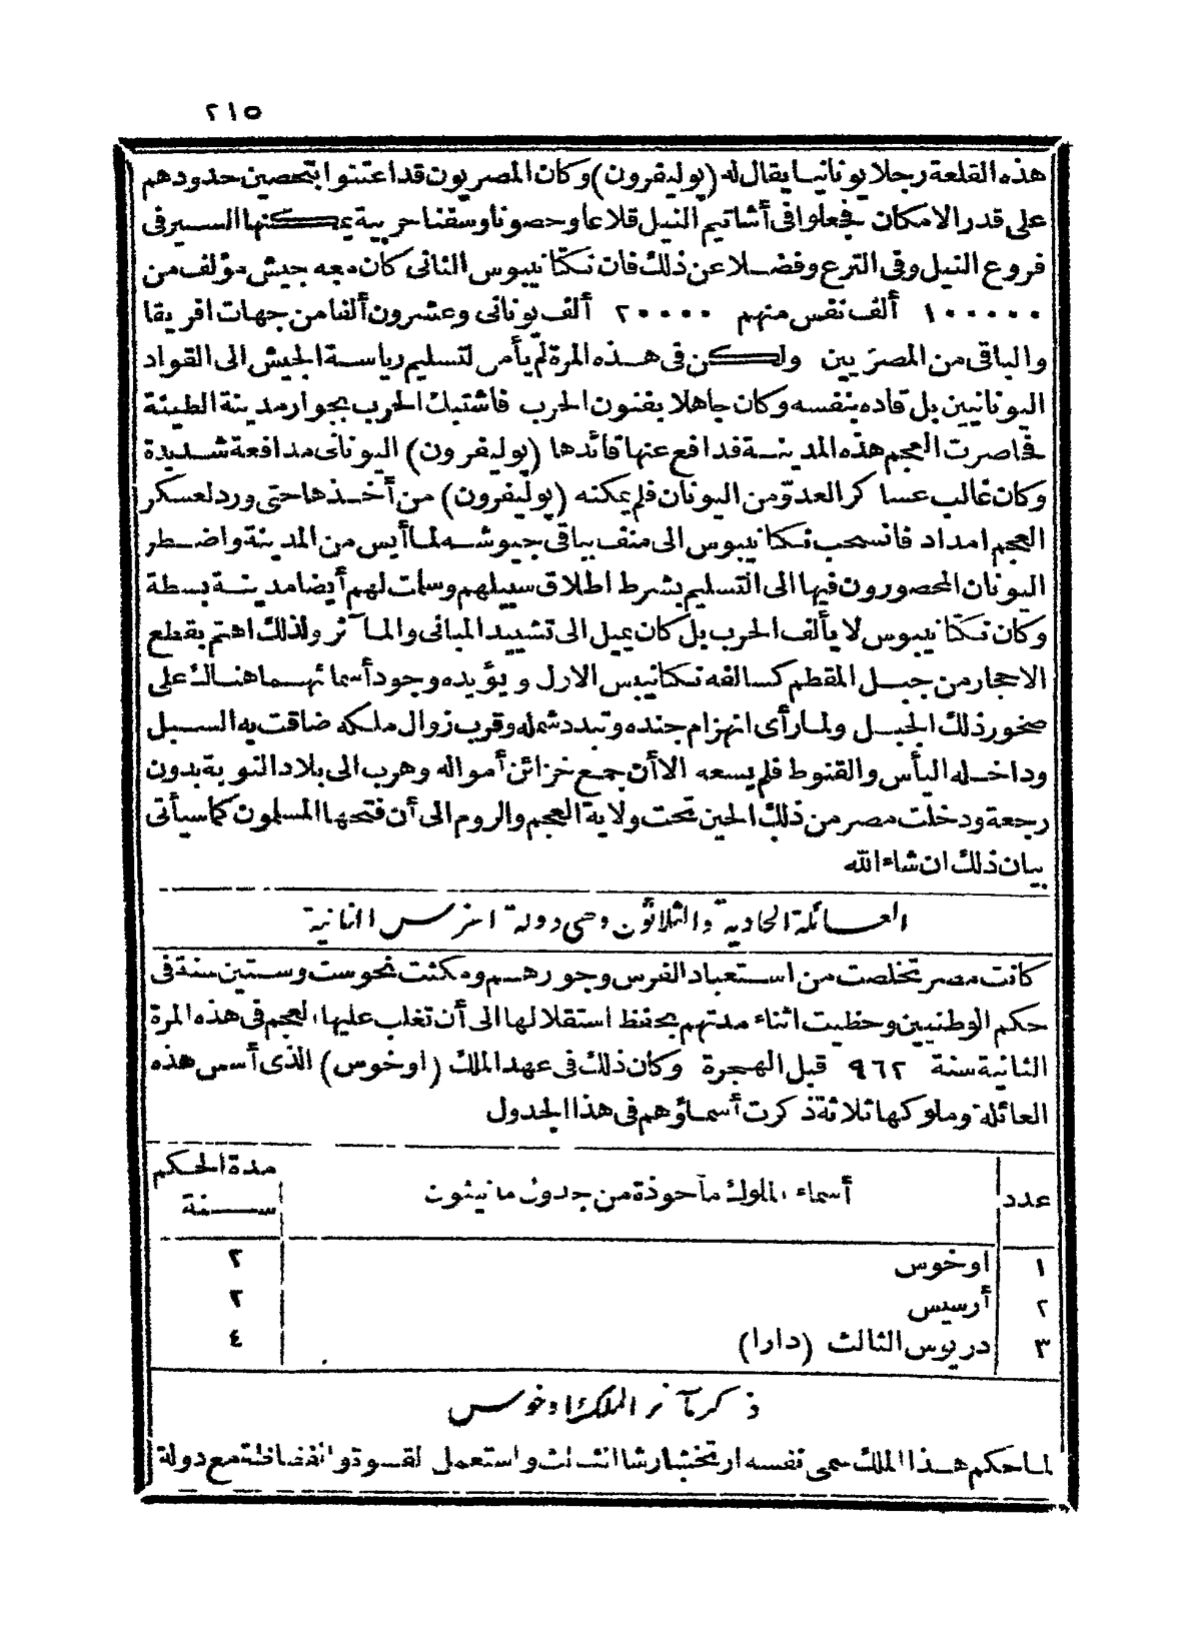 ٢١٥
هذه القلعة رجلا يونانيا يقال له (پوليفرون) وكان المصريون قد اعتنوا بتحصين حدودهم
على قدر الامكان فجعلوا فى أشاتيم النيل قلاعا وحصونا وسفنا حربية يمكنها السير فى
فروع النيل وفى الترع وفضلا عن ذلك فان نكتانيبوس الثانى كان معه جيش مؤلف من
١٠٠٠٠٠ ألف نفس منهم ٢٠٠٠٠ ألف يونانى وعشرون ألفا من جهات افريقا
والباقى من المصريين ولكن فى هذه المرة لم يأمر لتسليم رياسة الجيش الى القواد
اليونانيين بل قاده بنفسه وكان جاهلا بفنون الحرب فاشتبك الحرب بجوار مدينة الطينة
فحاصرت العجم هذه المدينة فدافع عنها قائدها (پوليفرون) اليونانى مدافعة شديدة
وكان غالب عساكر العدو من اليونان فلم يمكنه (پوليفرون) من أخذها حتى ورد لعسكر
العجم امداد فانسحب نكتانيبوس الى منف بباقى جيوشه لما أيس من المدينة واضطر
اليونان المحصورون فيها الى التسليم بشرط اطلاق سبيلهم وسلمت لهم أيضا مدينة بسطة
وكان نكتانيبوس لا يألف الحرب بل كان يميل الى تشييد المبانى والمآثر ولذلك اهتم بقطع
الاحجار من جبل المقطم كسالفه نكتانيبس الاول ويؤيده وجود أسمائهما هنالك على
صخور ذلك الجبل ولما رأى انهزام جنده وتبدد شمله وقرب زوال ملكه ضاقت به السبل
وداخله اليأس والقنوط فلم يسعه الا أن جمع خزائن أمواله وهرب الى بلاد النوبة بدون
رجعة ودخلت مصر من ذلك الحين تحت ولاية العجم والروم الى أن فتحها المسلمون كما سيأتى
بيان ذلك ان شاء الله
العائلة الحادية والثلاثون وهى دولة الفرس الثانية
كانت مصر تخلصت من استعباد الفرس وجورهم ومكثت نحو ست وستين سنة فى
حكم الوطنيين وحظيت اثناء مدتهم بحفظ استقلالها الى أن تغلب عليها العجم فى هذه المرة
الثانية سنة ٩٦٢ قبل الهجرة وكان ذلك فى عهد الملك (اوخوس) الذى أسس هذه
العائلة وملوكها ثلاثة ذكرت أسماؤهم فى هذا الجدول
عدد أسماء الملوك مأخوذة من جدول مانيثون مدة الحكم سنة
١ اوخوس ٢
٢ أرسيس ٢
٣ دريوس الثالث (دارا) ٤
ذكر مآثر الملك اوخوس
لما حكم هذا الملك سمى نفسه ارتخشارشا الثالث واستعمل القسوة والفظاظة مع دولة